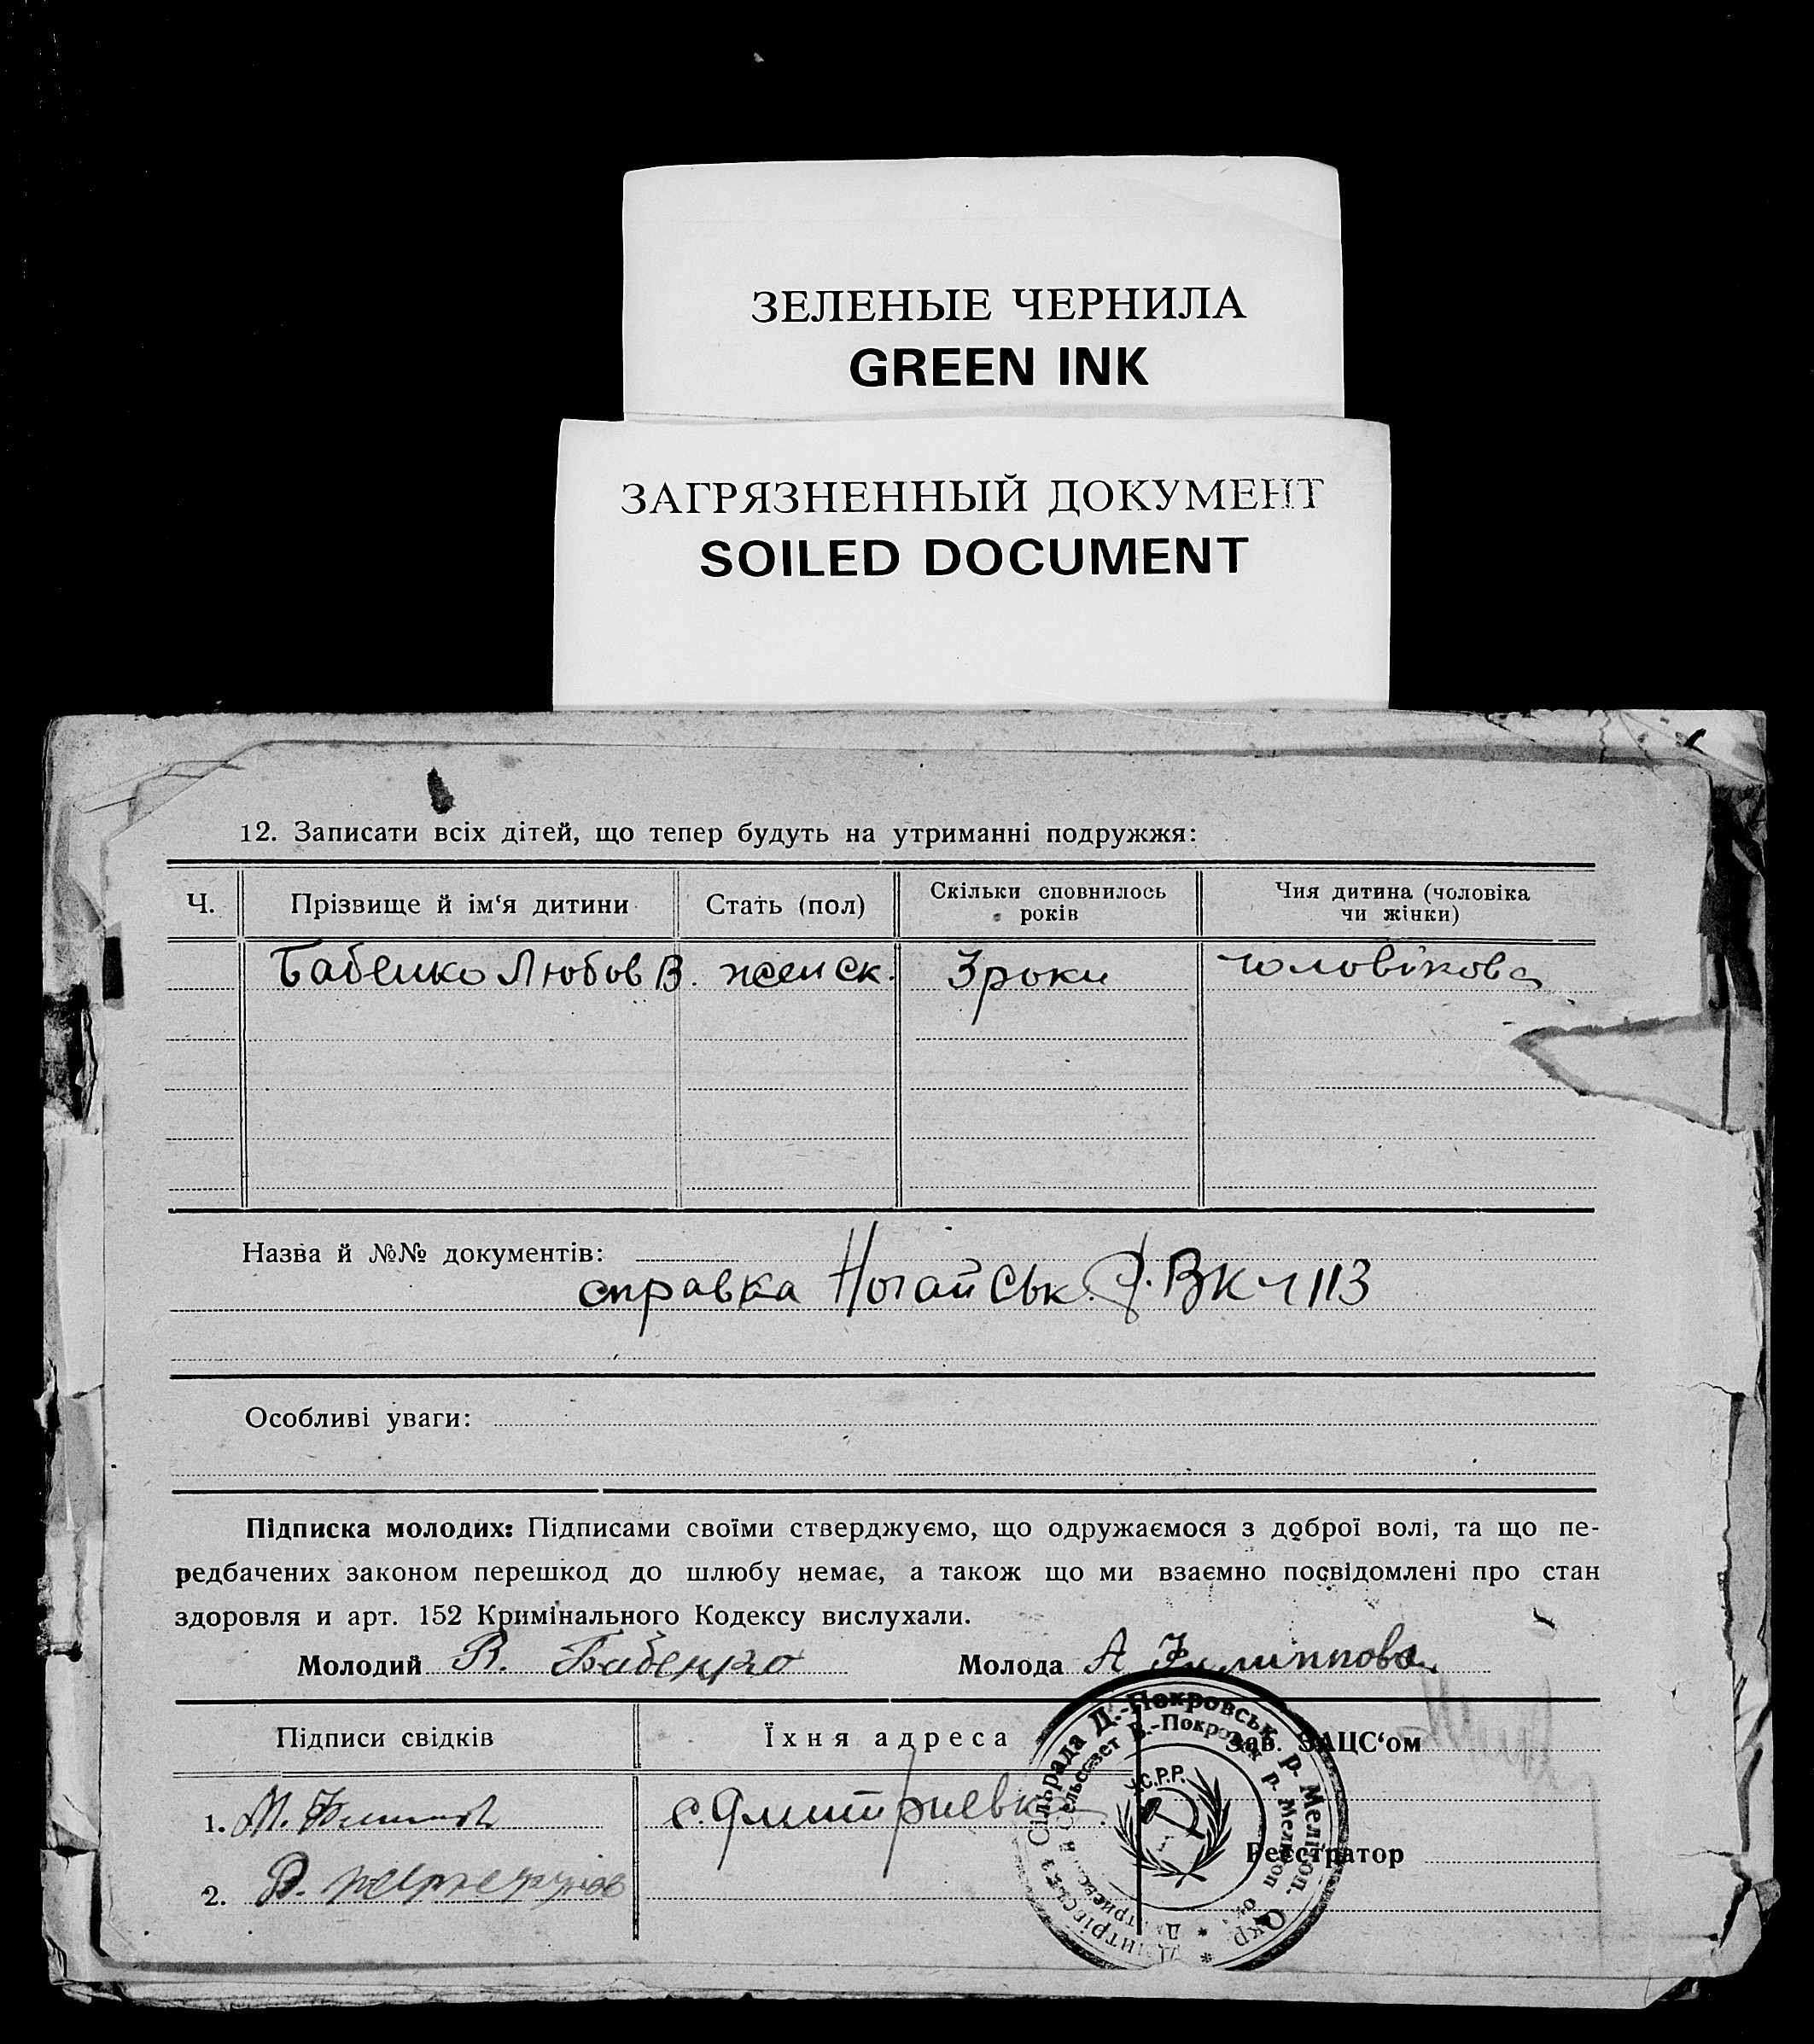 ЗЕЛЕНЫЕ ЧЕРНИЛА
GREEN INK
ЗАГРЯЗНЕННЫЙ ДОКУМЕНТ
SOILED DOCUMENT
12. Записати всіх дітей, що тепер будуть на утриманні подружжя:
Ч. Прізвище й ім‘я дитини Стать (пол) Скільки сповнилось років Чия дитина (чоловіка чи жінки)
Бабенко Любов В. женск. 3 роки чоловікова
Назва й №№ документів:
справка Ногайськ. Р.ВК ч 113
Особливі уваги:
Підписка молодих: Підписами своїми стверджуємо, що одружаємося з доброї волі, та що пе-
редбачених законом перешкод до шлюбу немає, а також що ми взаємно посвідомлені про стан
здоровля и арт. 152 Кримінального Кодексу вислухали.
Молодий В. Бабенко Молода А Филіппова
Підписи свідків Їхня адреса Зав. ЗАЦС‘ом
1. М. с. Дмитриевка
Реєстратор
2. В.
Сільрада Д.-Покровськ. р. Мелітоп. Окр.
Сельсовет В.-Покровск р. Мелитоп
У.С.Р.Р.